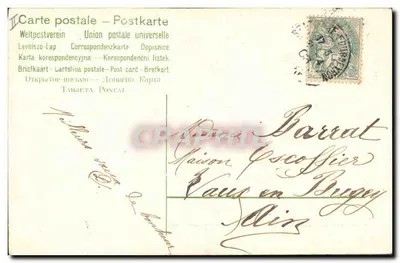 Carte postale – Postkarte
Weltpostverein Union postale universelle
Levelező-Lap Correspondenzkarte Dopisnice
Karta korespondencyjna – Korespondenční lístek.
Briefkaart – Cartolina postale – Post card – Brefkort
Открытое письмо – Дописна Карта
TARJETA POSTAL
Madame Barrat
Maison Escoffier
Vaux en Bugey
Ain
Meilleurs vœux
de bonheur
Delcampe